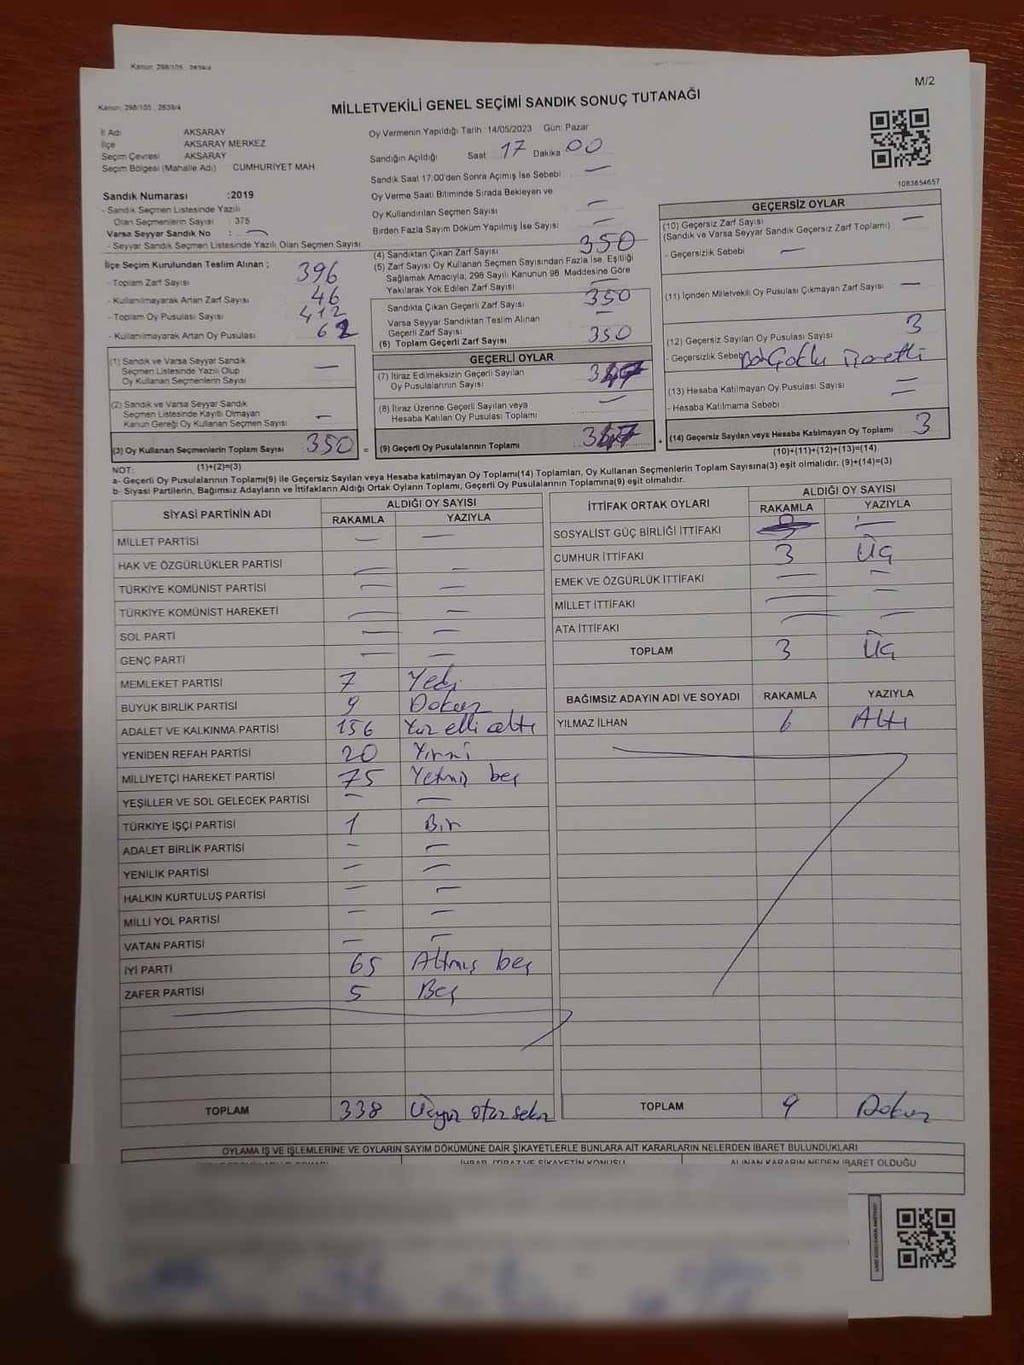 Kanun: 298/105 2839/4
Kanun: 298/105 2839/4
M/2
MİLLETVEKİLİ GENEL SEÇİMİ SANDIK SONUÇ TUTANAĞI
İl Adı AKSARAY
İlçe AKSARAY MERKEZ
Seçim Çevresi AKSARAY
Seçim Bölgesi (Mahalle Adı) CUMHURİYET MAH
Sandık Numarası :2019
- Sandık Seçmen Listesinde Yazılı
Olan Seçmenlerin Sayısı : 375
Varsa Seyyar Sandık No : —
- Seyyar Sandık Seçmen Listesinde Yazılı Olan Seçmen Sayısı
İlçe Seçim Kurulundan Teslim Alınan ;
- Toplam Zarf Sayısı 396
- Kullanılmayarak Artan Zarf Sayısı 46
- Toplam Oy Pusulası Sayısı 412
- Kullanılmayarak Artan Oy Pusulası 62
(1) Sandık ve Varsa Seyyar Sandık
Seçmen Listesinde Yazılı Olup
Oy Kullanan Seçmenlerin Sayısı —
(2) Sandık ve Varsa Seyyar Sandık
Seçmen Listesinde Kayıtlı Olmayan
Kanun Gereği Oy Kullanan Seçmen Sayısı —
(3) Oy Kullanan Seçmenlerin Toplam Sayısı 350 =
Oy Vermenin Yapıldığı Tarih :14/05/2023 Gün: Pazar
Sandığın Açıldığı Saat 17 Dakika 00
Sandık Saat 17:00'den Sonra Açılmış İse Sebebi —
Oy Verme Saati Bitiminde Sırada Bekleyen ve
Oy Kullandırılan Seçmen Sayısı —
Birden Fazla Sayım Döküm Yapılmış İse Sayısı —
(4) Sandıktan Çıkan Zarf Sayısı 350
(5) Zarf Sayısı Oy Kullanan Seçmen Sayısından Fazla İse, Eşitliği
Sağlamak Amacıyla; 298 Sayılı Kanunun 98. Maddesine Göre
Yakılarak Yok Edilen Zarf Sayısı —
Sandıkta Çıkan Geçerli Zarf Sayısı 350
Varsa Seyyar Sandıktan Teslim Alınan
Geçerli Zarf Sayısı —
(6) Toplam Geçerli Zarf Sayısı 350
GEÇERLİ OYLAR
(7) İtiraz Edilmeksizin Geçerli Sayılan
Oy Pusulalarının Sayısı 347
(8) İtiraz Üzerine Geçerli Sayılan veya
Hesaba Katılan Oy Pusulası Toplamı —
(9) Geçerli Oy Pusulalarının Toplamı 347 +
1083654657
GEÇERSİZ OYLAR
(10) Geçersiz Zarf Sayısı
(Sandık ve Varsa Seyyar Sandık Geçersiz Zarf Toplamı) —
- Geçersizlik Sebebi —
(11) İçinden Milletvekili Oy Pusulası Çıkmayan Zarf Sayısı —
(12) Geçersiz Sayılan Oy Pusulası Sayısı 3
- Geçersizlik Sebebi işaretli
(13) Hesaba Katılmayan Oy Pusulası Sayısı —
- Hesaba Katılmama Sebebi —
(14) Geçersiz Sayılan veya Hesaba Katılmayan Oy Toplamı 3
NOT: (1)+(2)=(3) (10)+(11)+(12)+(13)=(14)
a- Geçerli Oy Pusulalarının Toplamı(9) ile Geçersiz Sayılan veya Hesaba katılmayan Oy Toplamı(14) Toplamları, Oy Kullanan Seçmenlerin Toplam Sayısına(3) eşit olmalıdır. (9)+(14)=(3)
b- Siyasi Partilerin, Bağımsız Adayların ve İttifakların Aldığı Ortak Oyların Toplamı, Geçerli Oy Pusulalarının Toplamına(9) eşit olmalıdır.
SİYASİ PARTİNİN ADI ALDIĞI OY SAYISI
RAKAMLA YAZIYLA
MİLLET PARTİSİ — —
HAK VE ÖZGÜRLÜKLER PARTİSİ — —
TÜRKİYE KOMÜNİST PARTİSİ — —
TÜRKİYE KOMÜNİST HAREKETİ — —
SOL PARTİ — —
GENÇ PARTİ — —
MEMLEKET PARTİSİ 7 Yedi
BÜYÜK BİRLİK PARTİSİ 9 Dokuz
ADALET VE KALKINMA PARTİSİ 156 Yüz elli altı
YENİDEN REFAH PARTİSİ 20 Yirmi
MİLLİYETÇİ HAREKET PARTİSİ 75 Yetmiş beş
YEŞİLLER VE SOL GELECEK PARTİSİ — —
TÜRKİYE İŞÇİ PARTİSİ 1 Bir
ADALET BİRLİK PARTİSİ — —
YENİLİK PARTİSİ — —
HALKIN KURTULUŞ PARTİSİ — —
MİLLİ YOL PARTİSİ — —
VATAN PARTİSİ — —
İYİ PARTİ 65 Altmış beş
ZAFER PARTİSİ 5 Beş
TOPLAM 338 Üçyüz otuz sekiz
İTTİFAK ORTAK OYLARI ALDIĞI OY SAYISI
RAKAMLA YAZIYLA
SOSYALİST GÜÇ BİRLİĞİ İTTİFAKI —
CUMHUR İTTİFAKI 3 Üç
EMEK VE ÖZGÜRLÜK İTTİFAKI — —
MİLLET İTTİFAKI — —
ATA İTTİFAKI — —
TOPLAM 3 Üç
BAĞIMSIZ ADAYIN ADI VE SOYADI RAKAMLA YAZIYLA
YILMAZ İLHAN 6 Altı
TOPLAM 9 Dokuz
OYLAMA İŞ VE İŞLEMLERİNE VE OYLARIN SAYIM DÖKÜMÜNE DAİR ŞİKAYETLERLE BUNLARA AİT KARARLARIN NELERDEN İBARET BULUNDUKLARI
İHBAR, İTİRAZ VE ŞİKAYETİN KONUSU ALINAN KARARIN NEDEN İBARET OLDUĞU